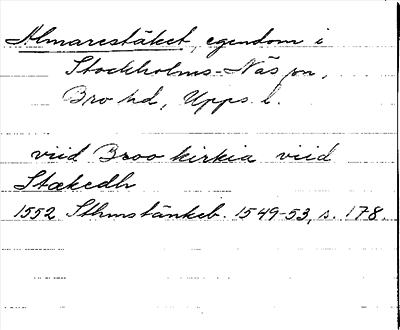 Almarestäket, egendom i
Stockholms-Näs sn,
Bro hd, Upps. l.
viid Broo kirkia viid
Stækedh
1552 Sthmstänkeb. 1549-53, s. 178.